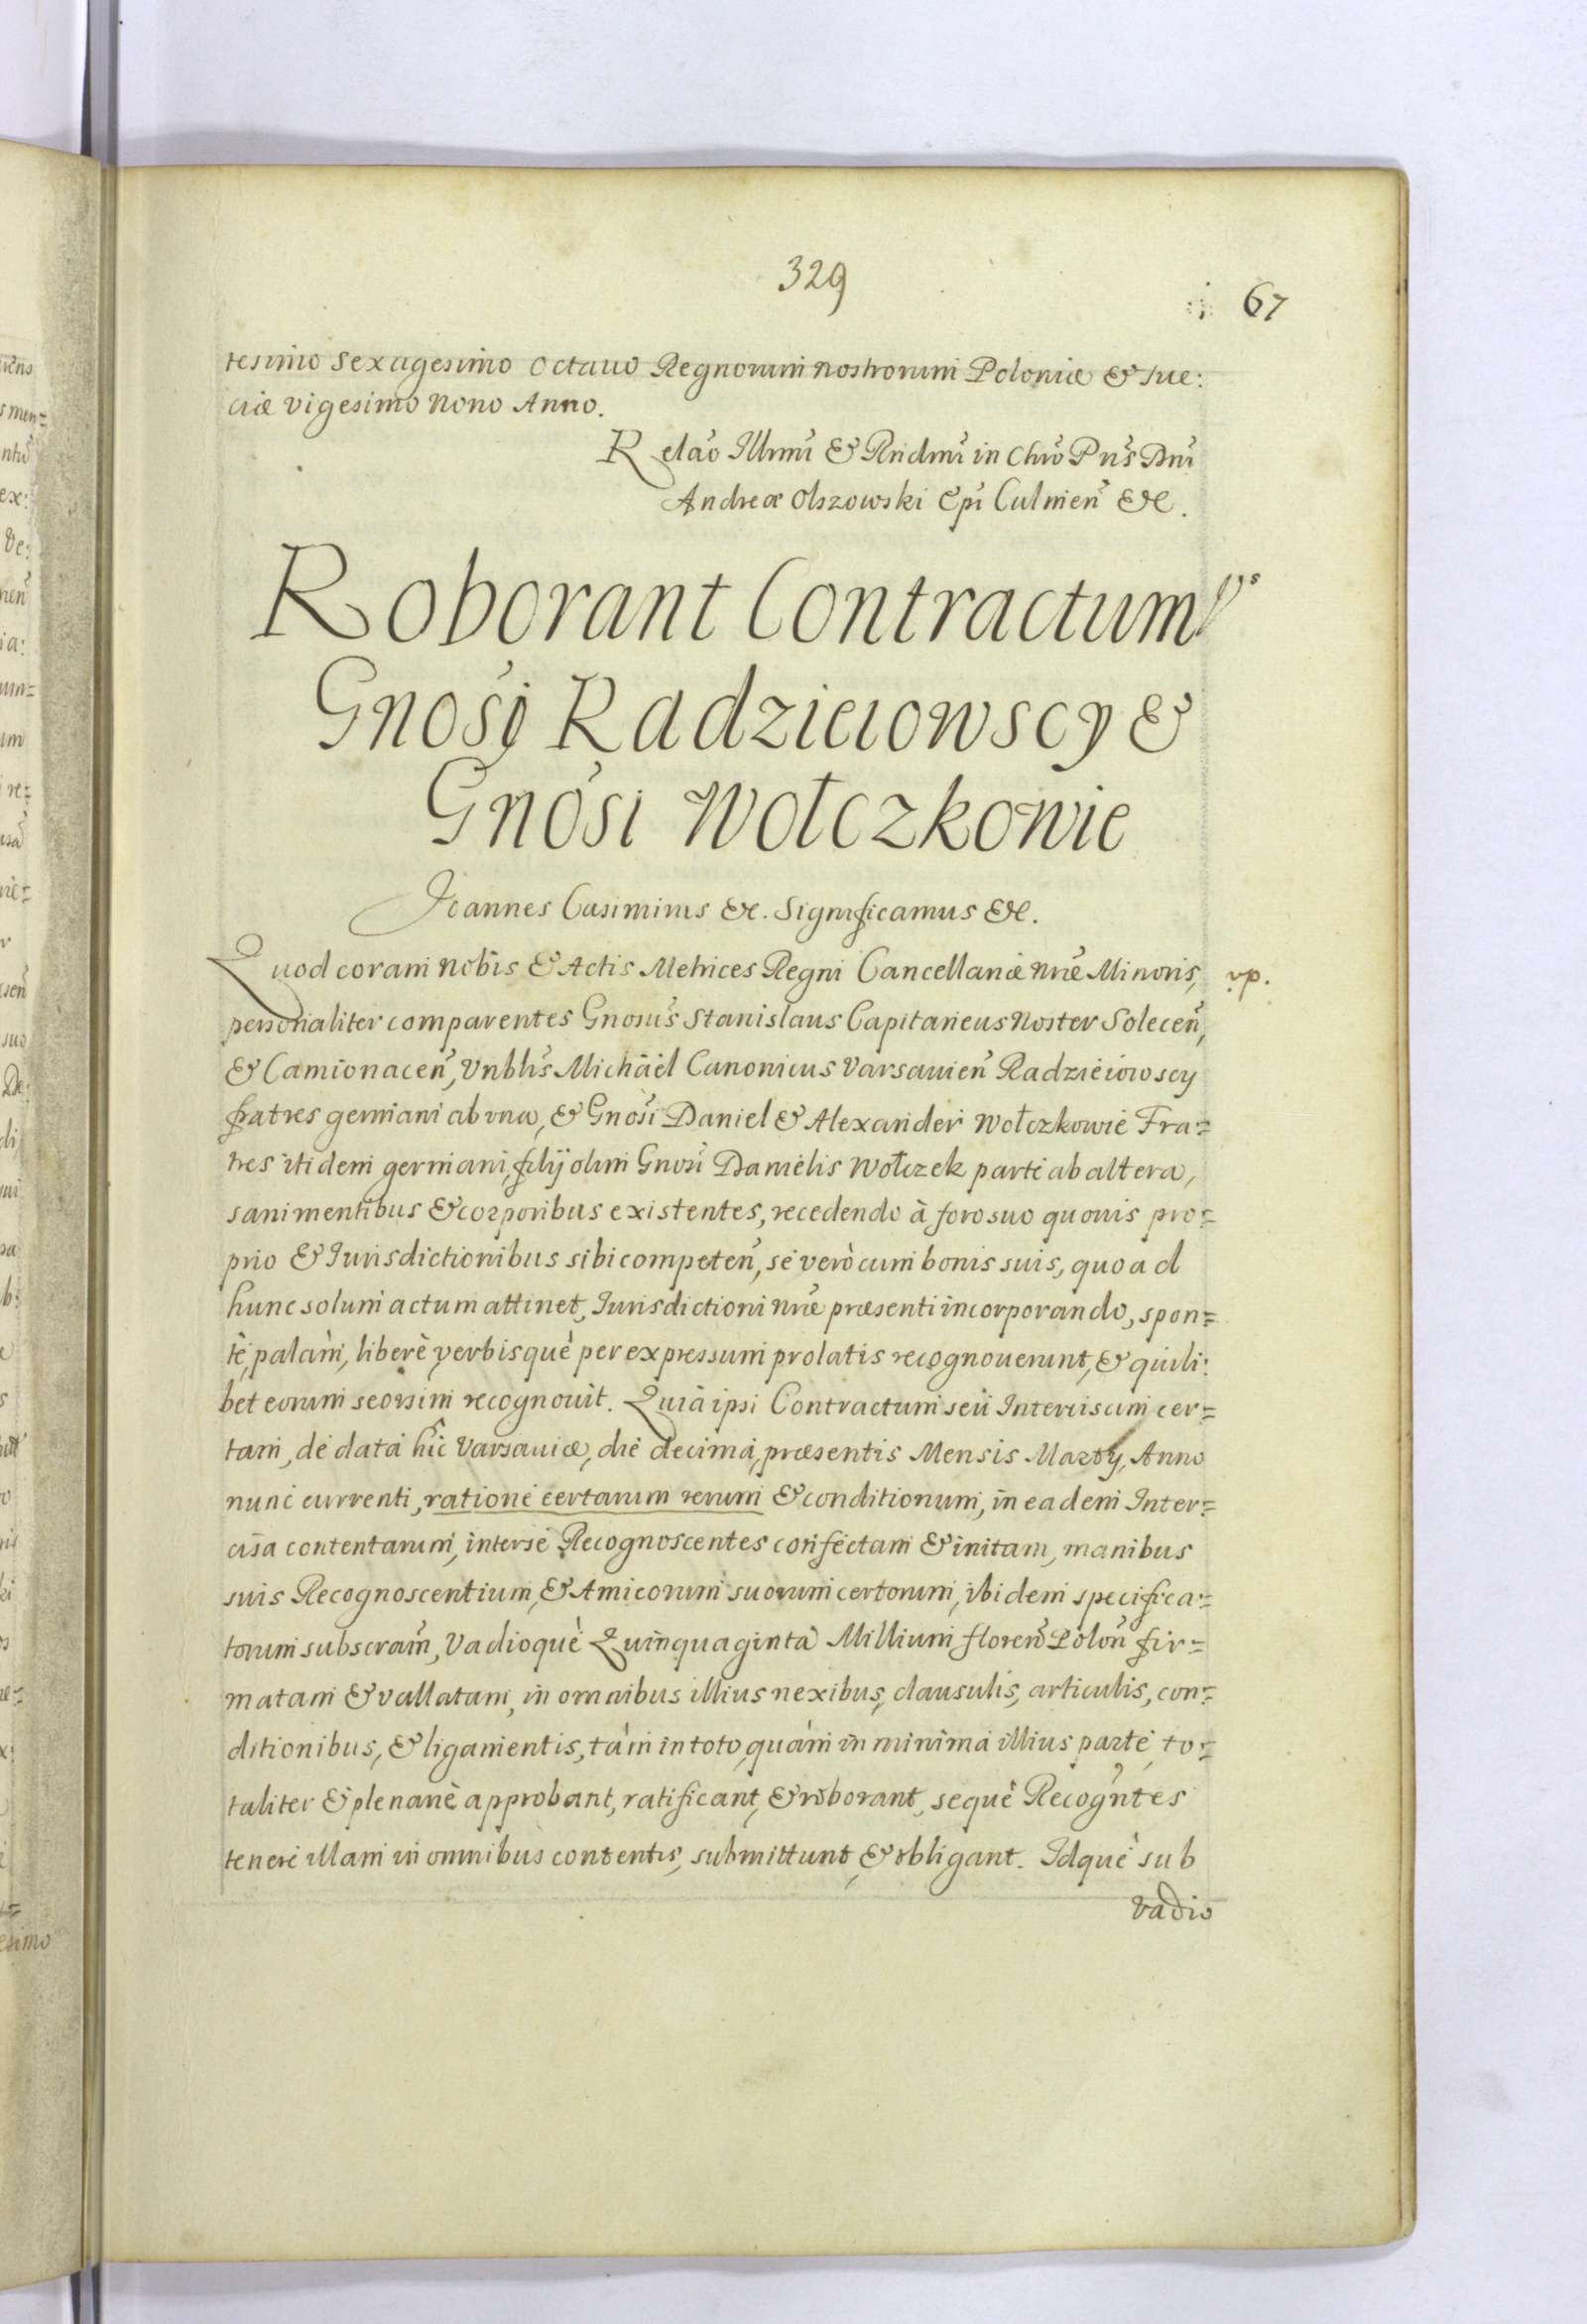 329
67
tesimo sexagesimo octauo Regnorum nostrorum Poloniæ & Sue:
ciæ vigesimo nono Anno.
Relāo Illrmi & Rndmi in Chro Pris Dni
Andreæ Olszowski Epi Culmen &c.
Roborant Contractum
Gnosi Radzieiowscy &
Gnosi Wołczkowie
Joannes Casimirus &c. Significamus &c.
Quod coram nobis & Actis Metrices Regni Cancellariæ nræ Minoris,
vp.
personaliter comparentes Gnosus Stanislaus Capitaneus Noster Solecen,
& Camionacen, Vnblis Michäel Canonicus Varsauien Radzieiowscy
fratres germani ab vna, & Gnosi Daniel & Alexander Wołczkowie Fra=
tres itidem germani, filij olim Gnosi Danielis Wołczek parte ab altera,
sani mentibus & corporibus existentes, recedendo à foro suo quouis pro=
prio & Jurisdictionibus sibi competen, se verò cum bonis suis, quo ad
hunc solum actum attinet, Jurisdictioni nræ præsenti incorporando, spon=
tè, palàm, liberè verbisquè per expressum prolatis recognouerunt, & quili:
bet eorum seorsim recognouit. Quià ipsi Contractum seù Intercisam cer=
tam, de data hîc Varsauiæ, die decima, præsentis Mensis Marty, Anno
nunc currenti, ratione certarum rerum & conditionum, in eadem Inter=
cisa contentarum, inter se Recognoscentes confectam & initam, manibus
suis Recognoscentium, & Amicorum suorum certorum, ibidem specifica=
torum subscram, Vadioquè Quinquaginta Millium floren Polon fir=
matam & vallatam, in omnibus illius nexibus, clausulis, articulis, con=
ditionibus, & ligamentis, tàm in toto, quàm in minima illius parte, to=
taliter & plenariè approbant, ratificant, & roborant, sequè Recogntes
tenere illam in omnibus contentis, submittunt, & obligant. Idquè sub
vadio